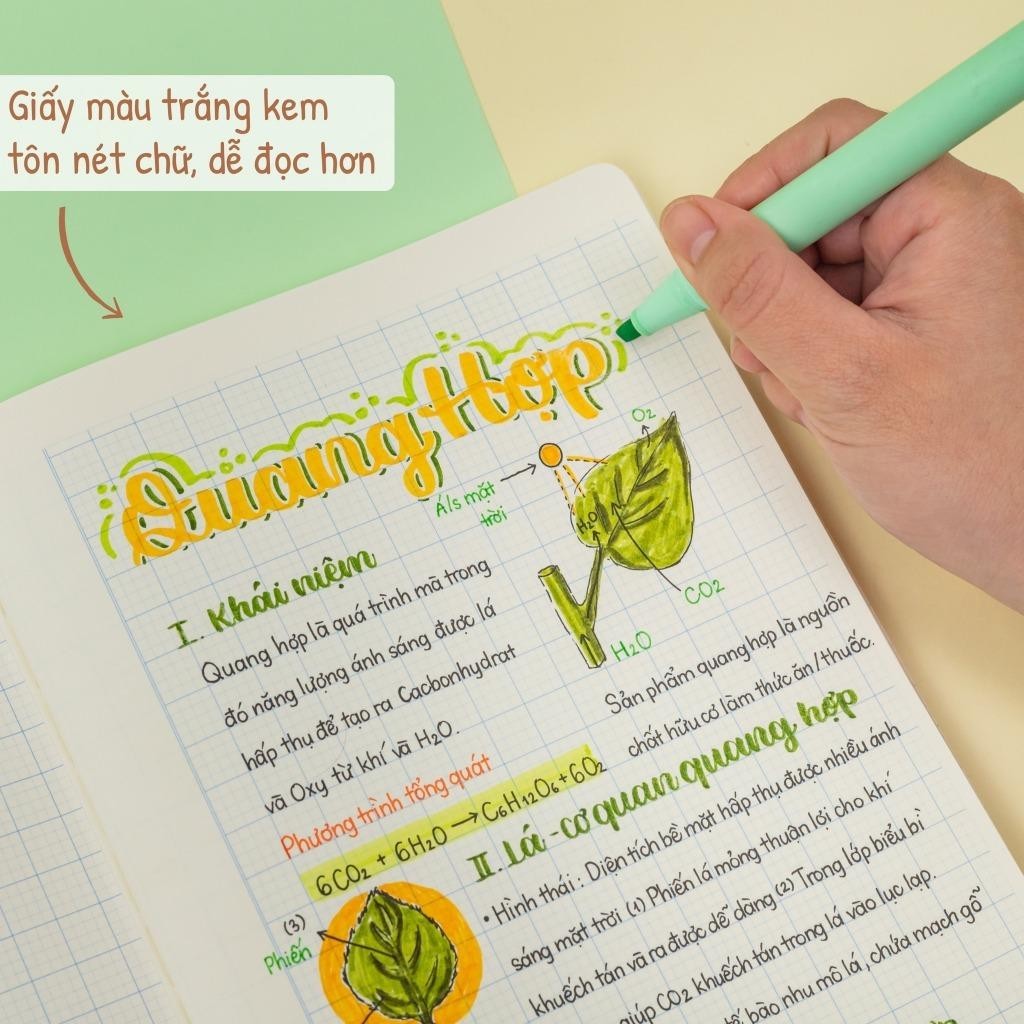 Giấy màu trắng kem
tôn nét chữ, dễ đọc hơn
Quang Hợp
O2
A/s mặt
trời
H2O
CO2
H2O
I. Khái niệm
Quang hợp là quá trình mà trong
đó năng lượng ánh sáng được lá
hấp thụ để tạo ra Cacbonhydrat
và Oxy từ khí và H2O.
Phương trình tổng quát
6CO2 + 6H2O → C6H12O6 + 6O2
Sản phẩm quang hợp là nguồn
chất hữu cơ làm thức ăn/thuốc.
II. Lá - cơ quan quang hợp
• Hình thái : Diện tích bề mặt hấp thụ được nhiều ánh
sáng mặt trời (1) Phiến lá mỏng thuận lợi cho khí
khuếch tán và ra được dễ dàng (2) Trong lớp biểu bì
giúp CO2 khuếch tán trong lá vào lục lạp.
tế bào như mô lá, chứa mạch gỗ
(3)
Phiến